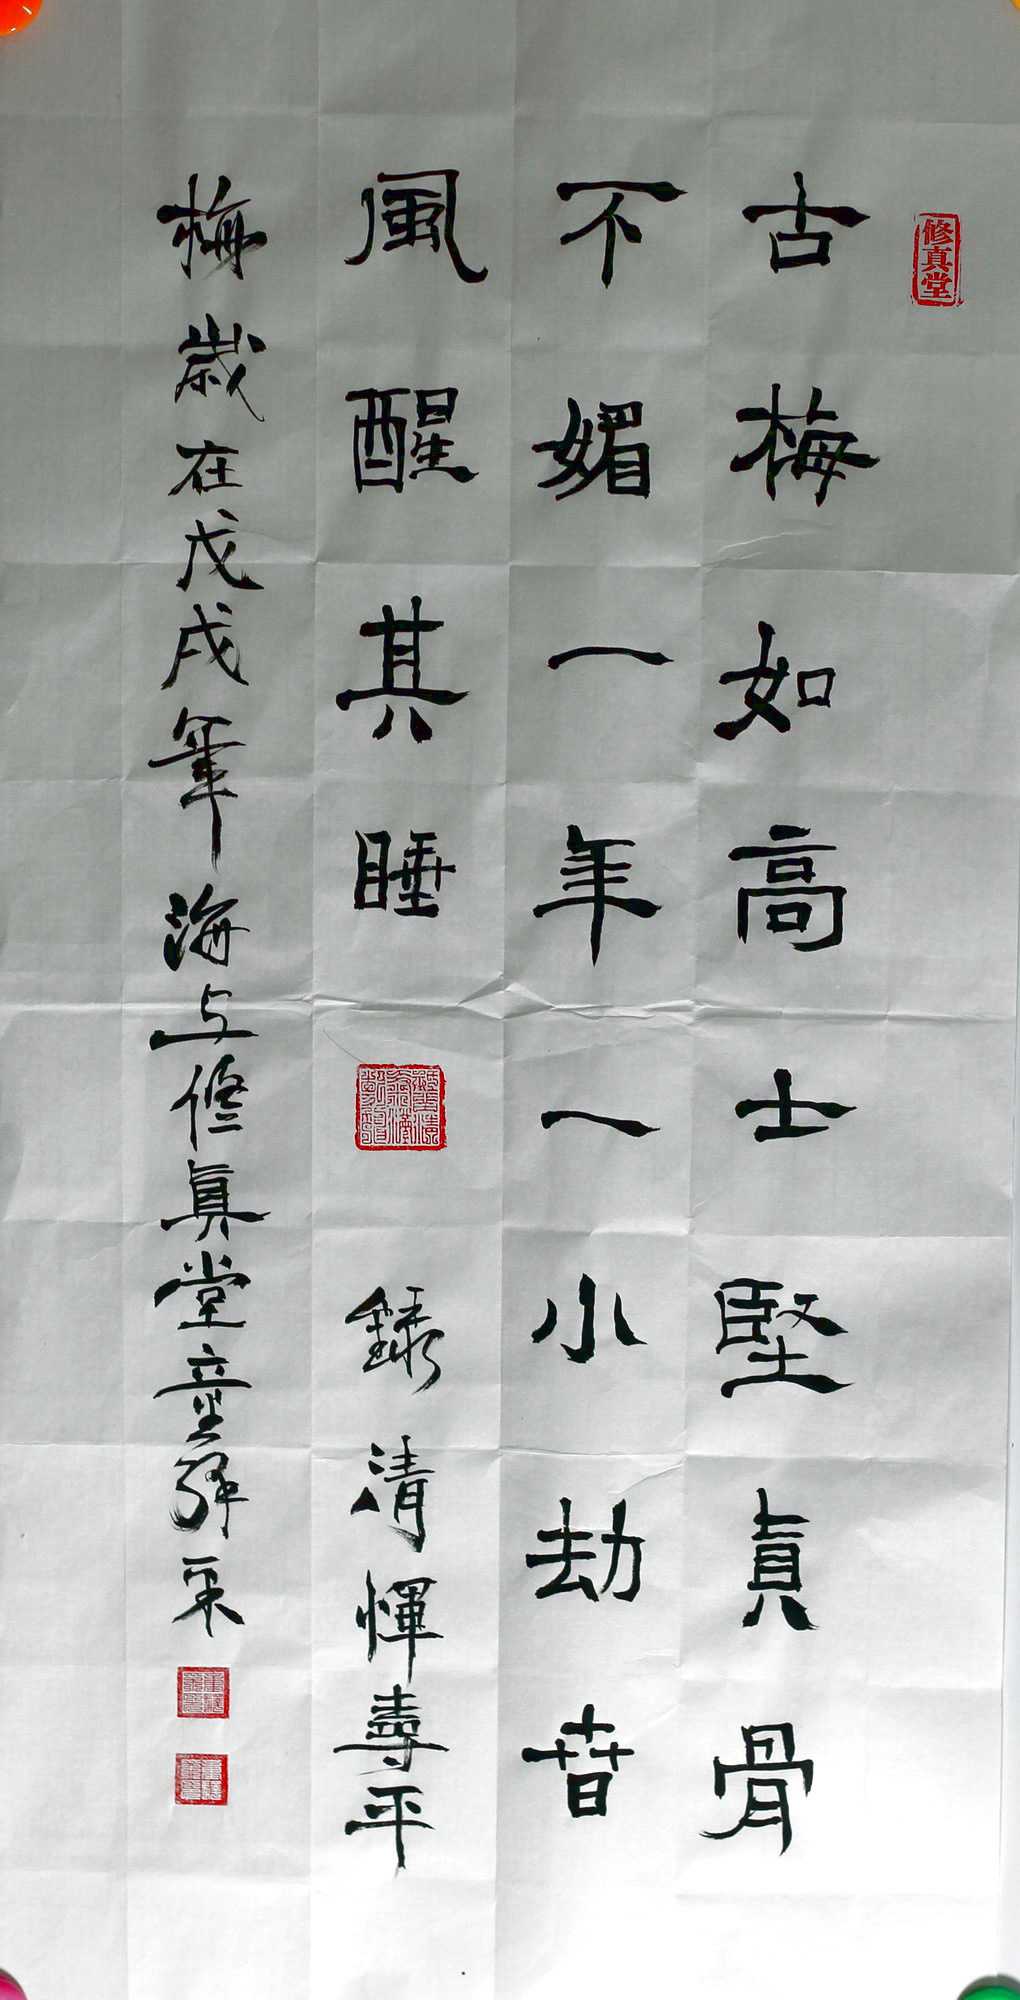 修真堂
古梅如高士堅貞骨
不媚一年一小劫春
風醒其睡
錄清惲壽平
梅歲在戊戌年海上修真堂童辉采